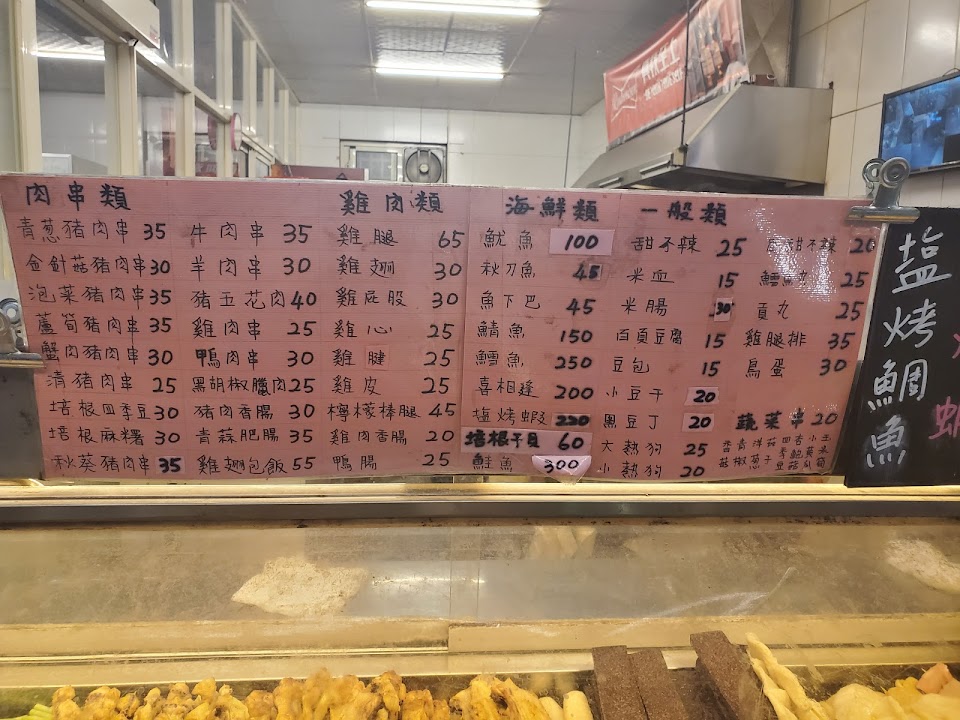 肉串類
青蔥豬肉串 35
金針菇豬肉串 30
泡菜豬肉串 35
蘆筍豬肉串 35
蟹肉豬肉串 30
清豬肉串 25
培根四季豆 30
培根麻糬 30
秋葵豬肉串 35
牛肉串 35
羊肉串 30
豬五花肉 40
雞肉串 25
鴨肉串 30
黑胡椒臘肉 25
豬肉香腸 30
青蒜肥腸 35
雞翅包飯 55
雞肉類
雞腿 65
雞翅 30
雞屁股 30
雞心 25
雞腱 25
雞皮 25
檸檬棒腿 45
雞肉香腸 20
鴨腸 25
海鮮類
魷魚 100
秋刀魚 45
魚下巴 45
鯖魚 150
鱈魚 250
喜相逢 200
塩烤蝦
培根干貝 60
鮭魚 300
一般類
甜不辣 25
米血 15
米腸 30
百頁豆腐 15
豆包 15
小豆干 20
黑豆丁 20
大熱狗 25
小熱狗 20
甜不辣 20
鱈魚 25
貢丸 25
雞腿排 35
鳥蛋 30
蔬菜串 20
塩烤鯛魚
蝦